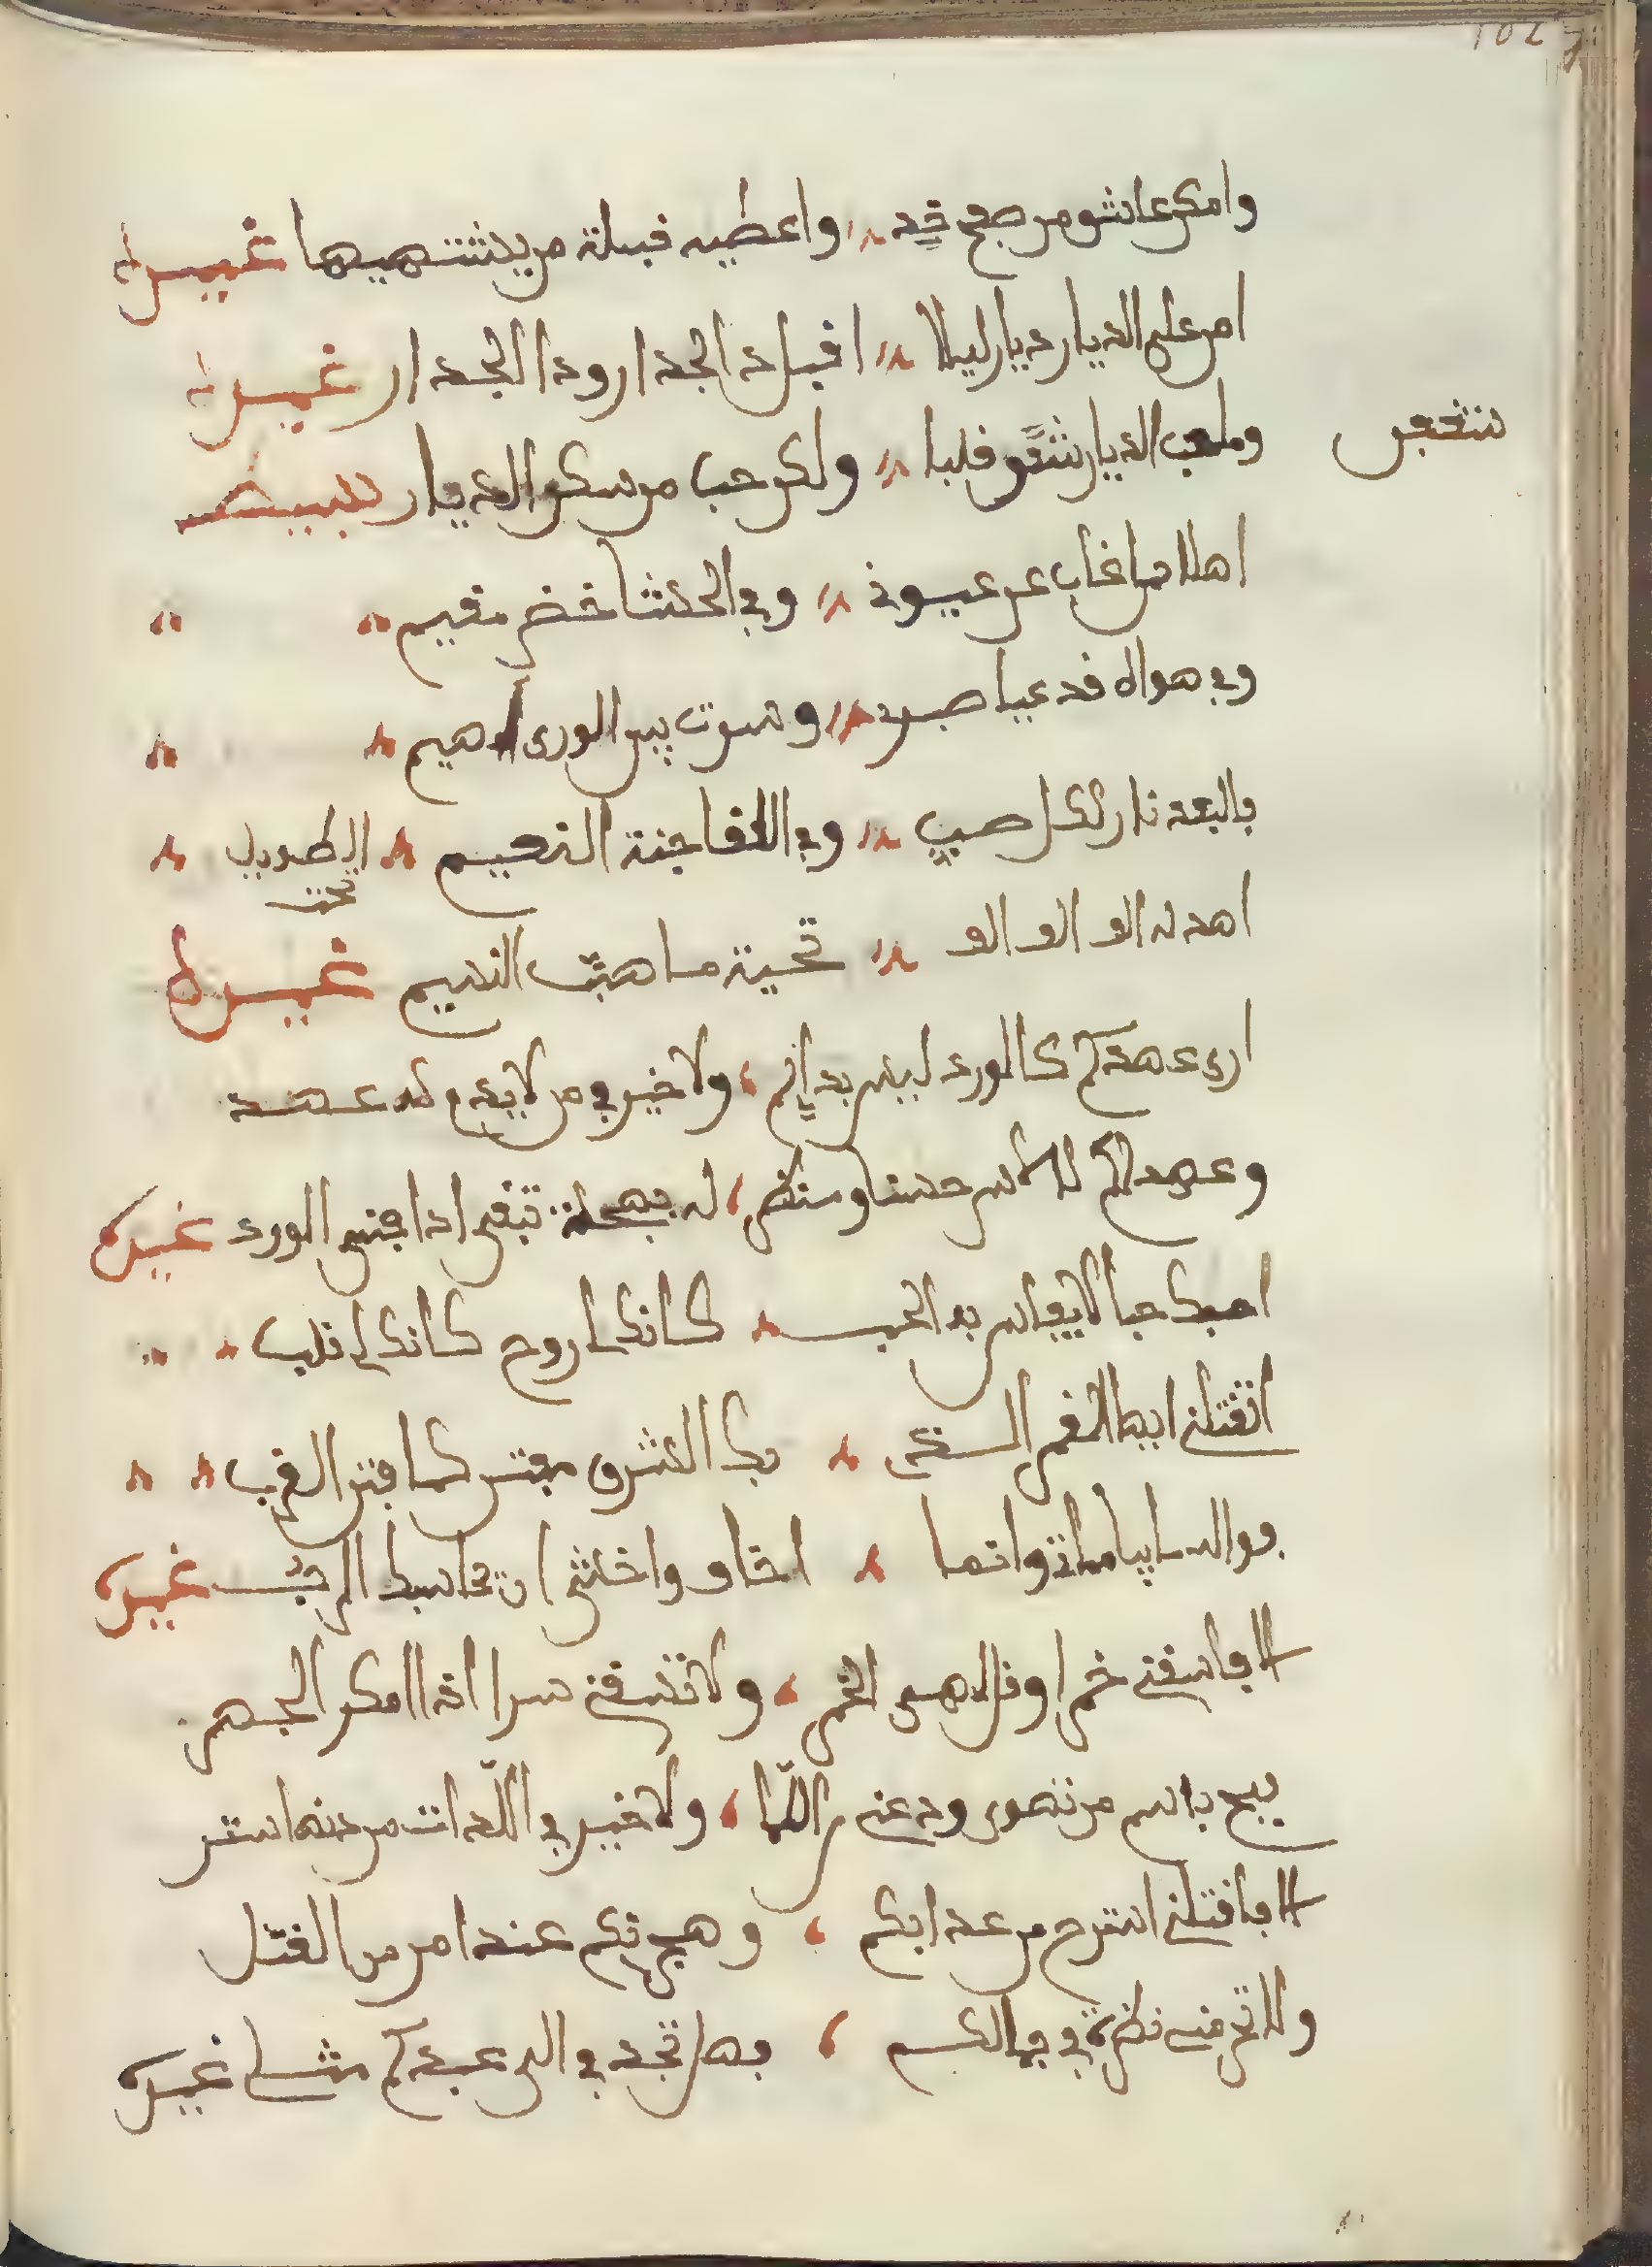 102
وامكن عاشق من صحن خد وأعطيه قبلة من يشتهيها غيره
امر على الديار ديار ليلا اقبل ذا الجدار وذا الجدار غيره
شغفن
وما حب الديار شغف قلبا ولكن حب من سكن الديار بسيط
اهلا من غاب عن عيوني وفي الحشا شخص مقيم
وفي هواه قد عيا صبري وسرت بين الورى اهيم
فالبعد نار لكل صب وفي اللقا جنة النعيم الطويل
اهد له الف الف الف تحية ما هب النسيم غيره
ارى عهدكم كالورد ليس بدايم ولا خير في من لا يدوم له عهد
وعهدي لكم كالاس حسنا ومنظرا له بهجة تبقى اذا فني الورد غيره
احبك حبا لا يقاس به الحب كانك روح كانك قلب
اتقتلني ايها القمر الذي بك الشرق مفتن كما فتن الغرب
فوالله ما بي ما اتى وانما اخاف واخشى ان يحاسبك الرب غيره
الا فاسقني خمرا وقل لي هي الخمر ولا تسقني سرا اذا امكن الجهر
فبح باسم من تهوى ودعني من الكنا ولا خير في اللذات من دونها ستر
الا فاقتلني استرح من عذابكم وهجرتكم عندي امر من القتل
ولا ترمني نظرة في جمالكم فهل تجد في الى عبدكم مثلي غيره